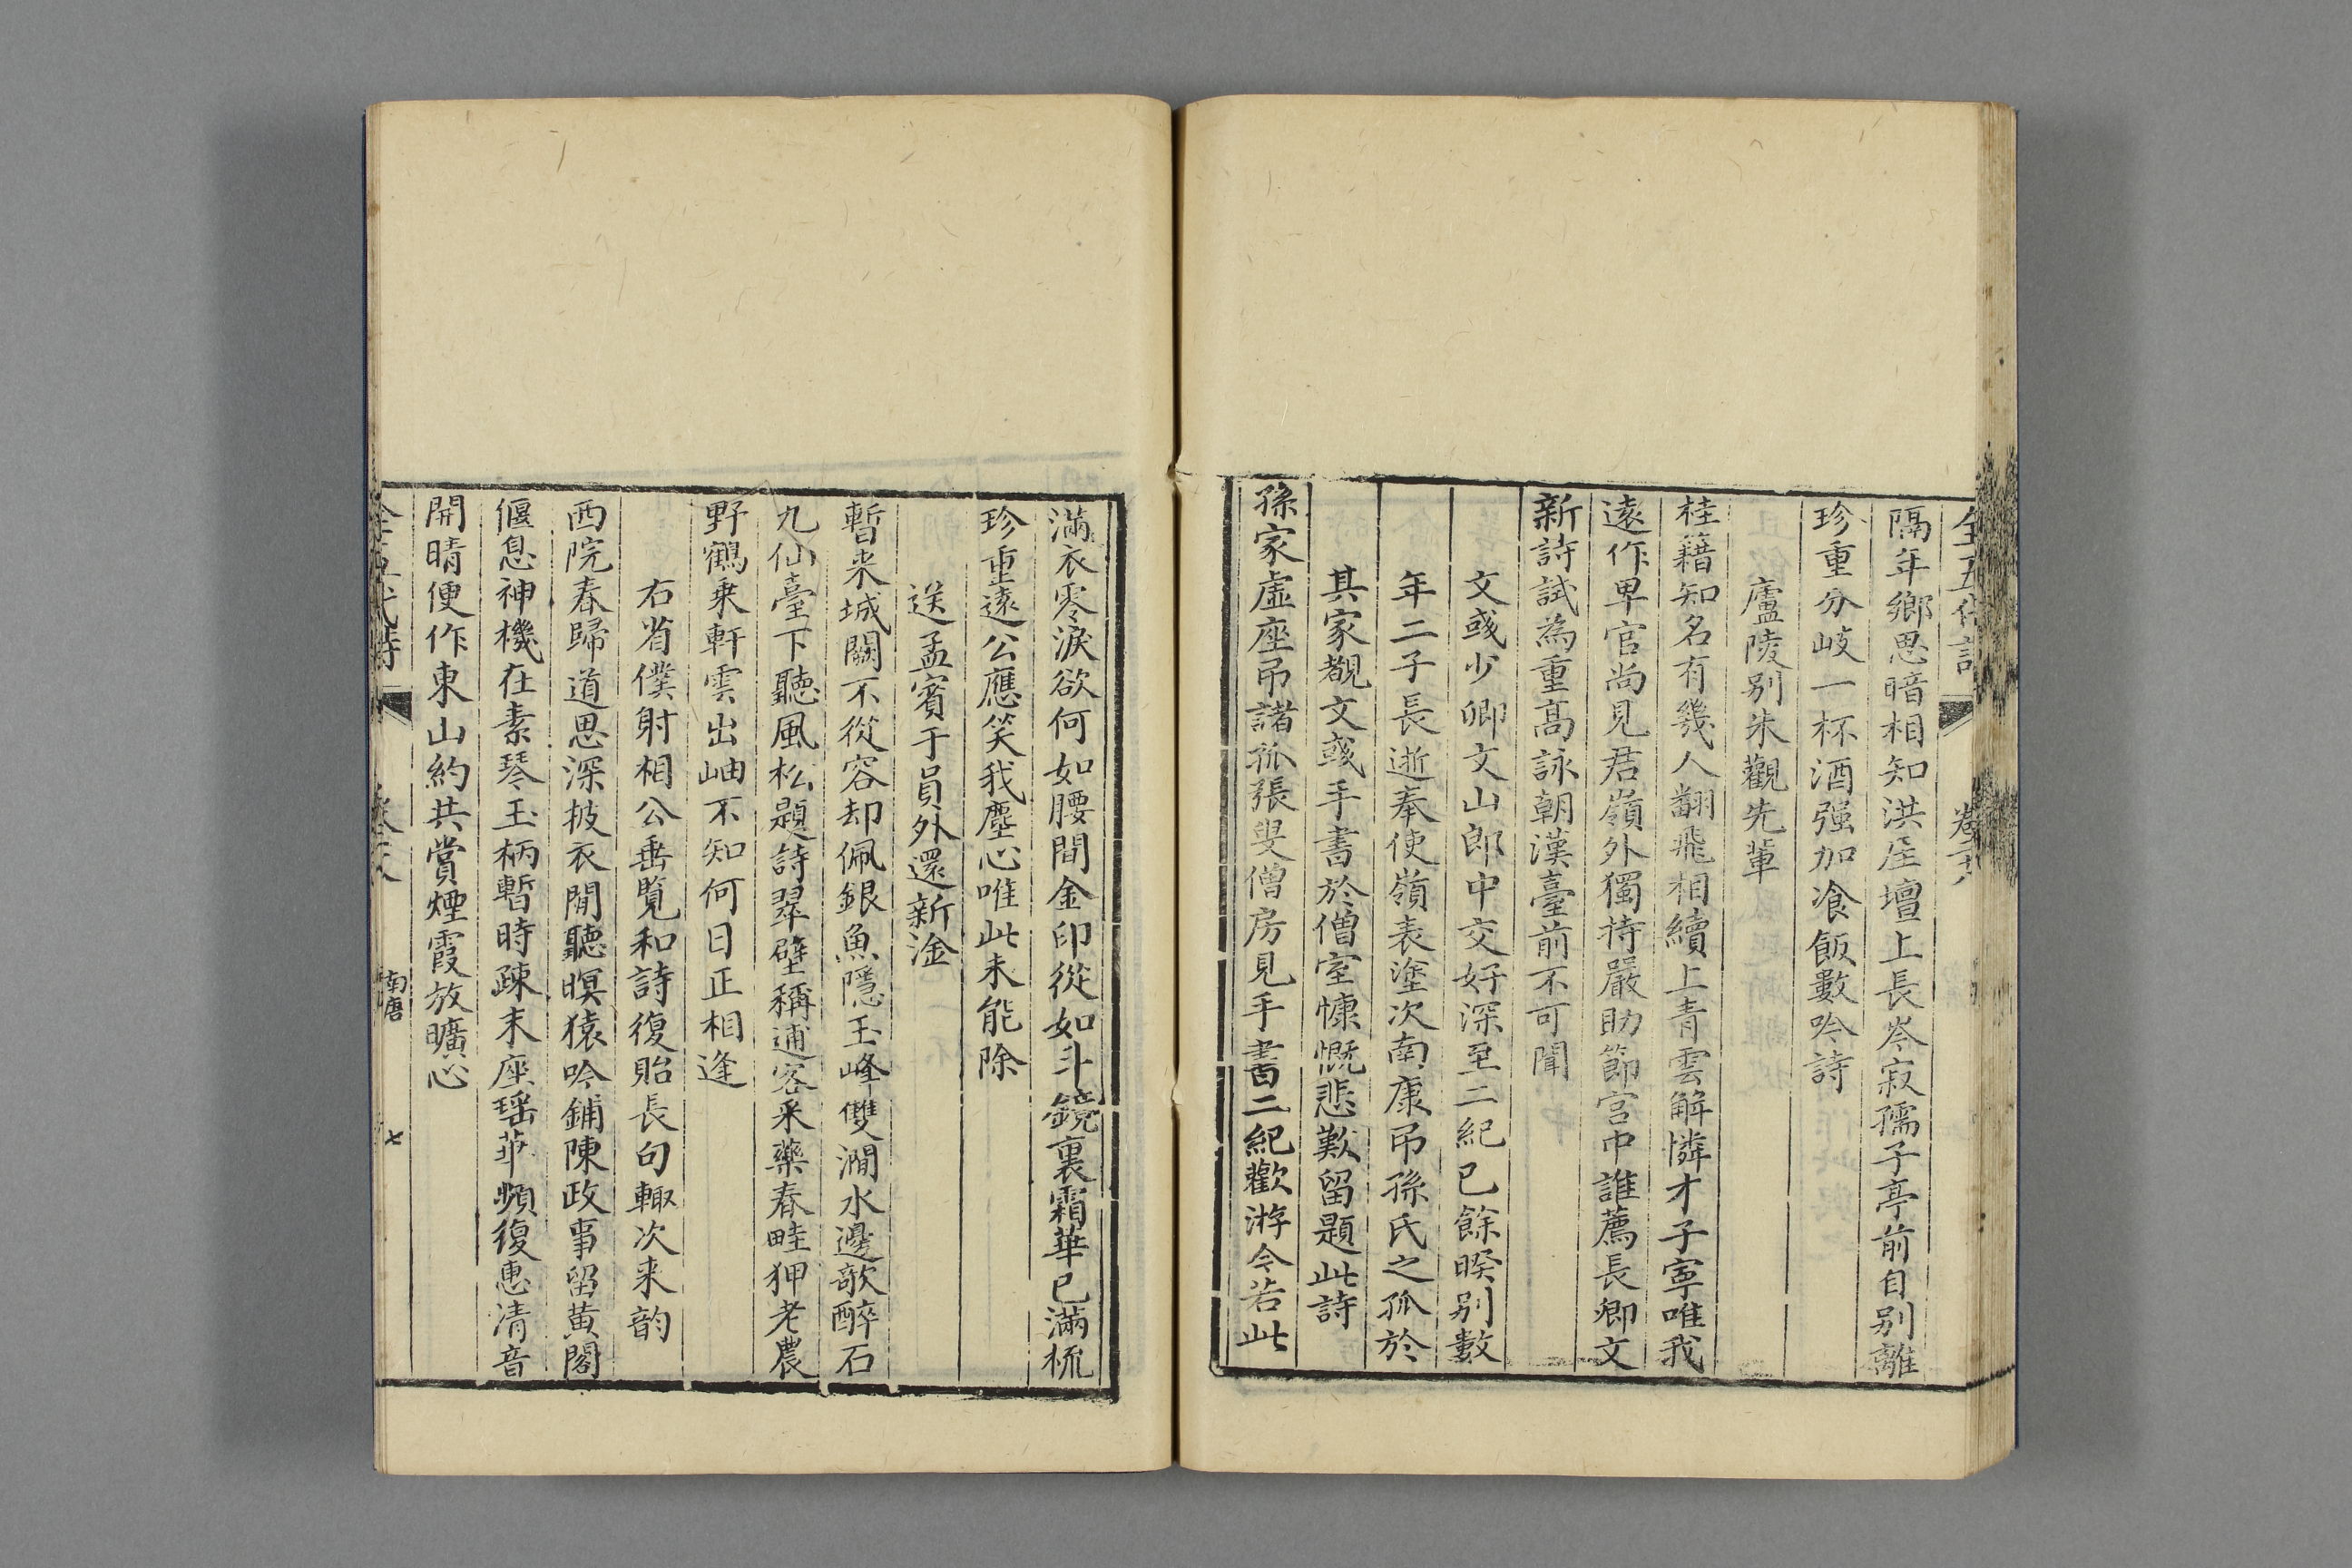 隔年鄉思暗相知洪厓壇上長岑寂孺子亭前自别離
珍重分岐一杯酒强加飡飯數吟詩
廬陵别朱觀先軰
桂籍知名有幾人翻飛相續上青雲解憐才子寧唯我
遠作卑官尚見君嶺外獨持嚴助節宫中誰薦長卿文
新詩試為重髙詠朝漢臺前不可聞
文彧少卿文山郎中交好深至二紀已餘暌别數
年二子長逝奉使嶺表塗次南康弔孫氏之孤於
其家覩文彧手書於僧室慷慨悲歎留題此詩
孫家虛座弔諸孤張叟僧房見手書二紀歡游今若此
滿衣零淚欲何如腰間金印從如斗鏡裏霜華已滿梳
珍重遠公應笑我塵心唯此未能除
送孟賓于員外還新淦
暫来城闕不從容却佩銀魚隱玉峰雙澗水邊歌醉石
九仙臺下聽風松題詩翠壁稱逋客采藥春畦狎老農
野鶴乗軒雲出岫不知何日正相逢
右省僕射相公垂覧和詩復貽長句輙次来韵
西院春歸道思深披衣閒聽暝猿吟鋪陳政事留黄閣
偃息神機在素琴玉柄暫時疎末座瑶華頻復惠清音
開晴便作東山約共賞煙霞放曠心
南唐
七